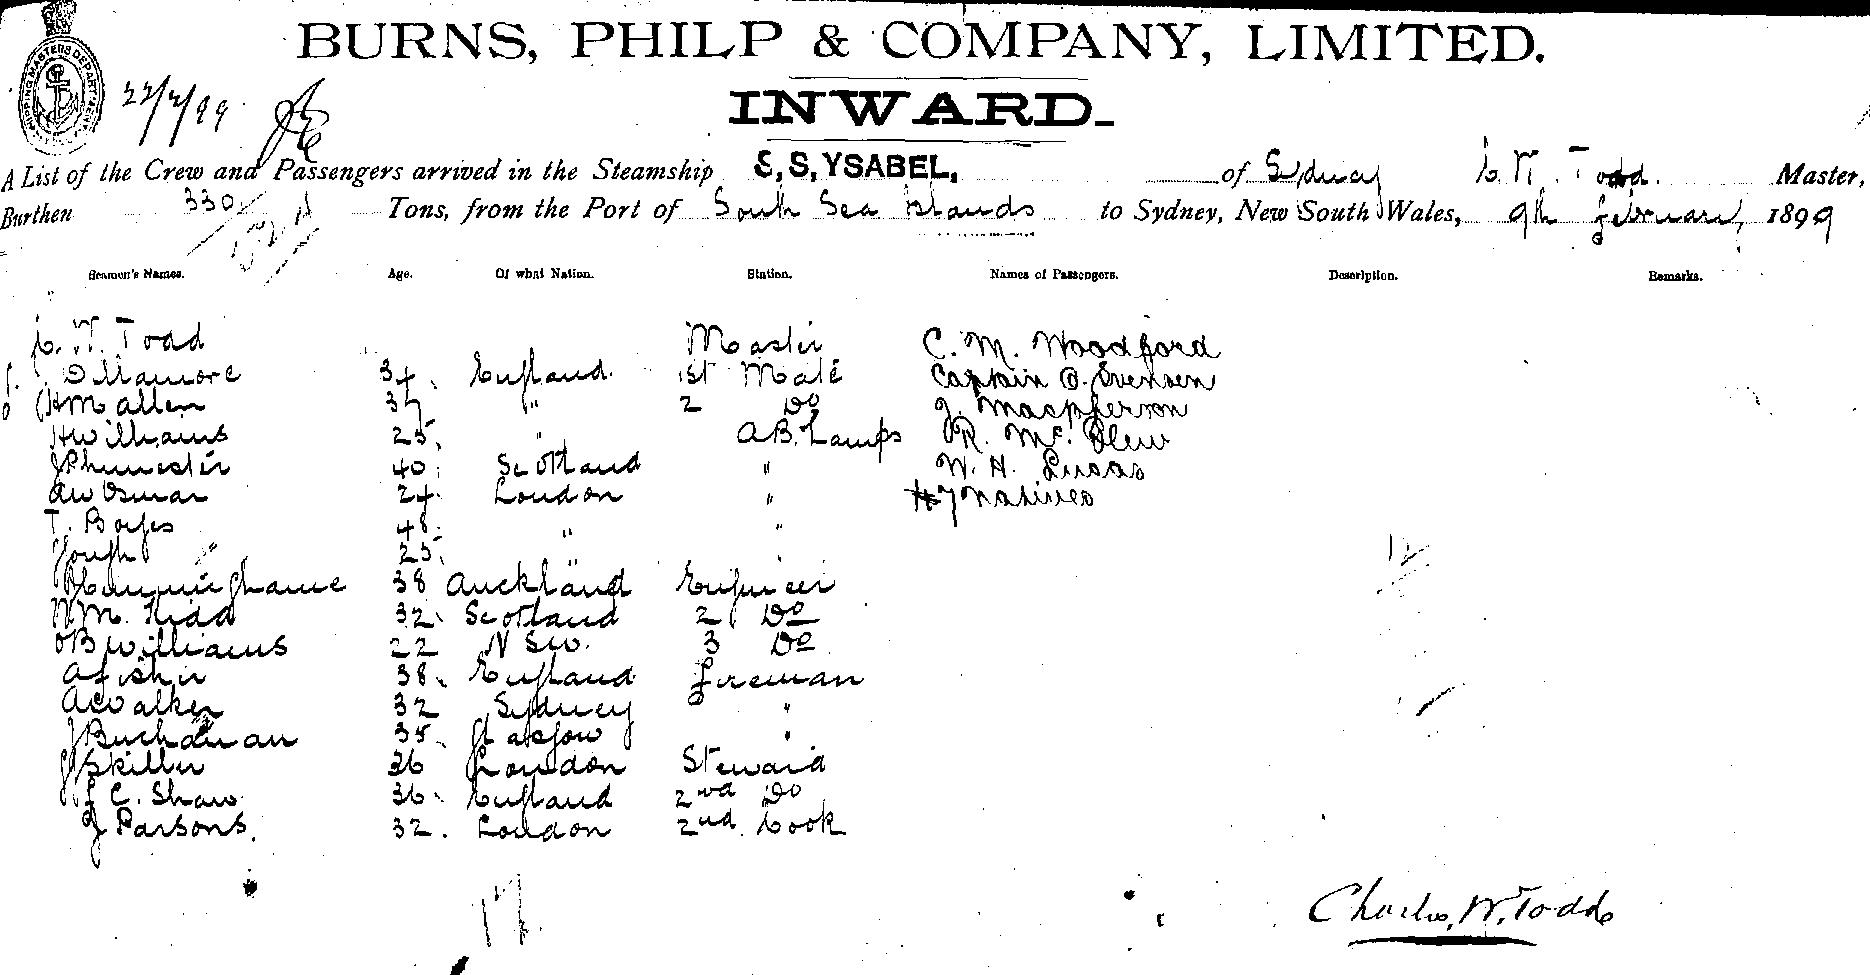 BURNS, PHILP & COMPANY, LIMITED.
INWARD.
22/2/99
A List of the Crew and Passengers arrived in the Steamship S,S,YSABEL, of Sydney C. W. Todd Master,
Burthen 330 Tons, from the Port of South Sea Islands to Sydney, New South Wales, 9th February, 1899
Seamen's Names. Age. Of what Nation. Station. Names of Passengers. Description. Remarks.
C. W. Todd Master C. M. Woodford
34. England. 1st Mate Captain O. Svensen
H M Allen 37 " 2 Do J. Macpherson
H Williams 25, " A.B. Lamps R. Mc.
40, Scotland " W. H. Lucas
24. London " 7 Natives
T. Boyes 48. " "
25, "
Cunninghame 38 Auckland Engineer
W M. Kidd 32. Scotland 2 Do
O B Williams 22 N SW. 3 Do
A Fisher 38. England Fireman
A Walker 32 Sydney "
J Buchanan 35. Glasgow "
J Skiller 36 London Steward
J C. Shaw 36. England 2nd Do
J Parsons. 32. London 2nd Cook
12
17
Charles. W. Todd